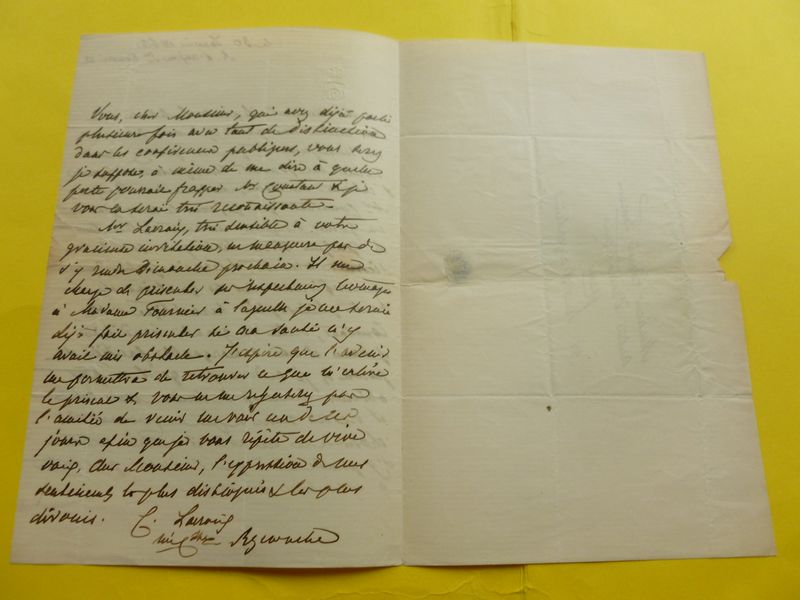 Vous, cher Monsieur, qui avez déjà parlé
plusieurs fois avec tant de distinction
dans les conférences publiques, vous serez
je suppose, à même de me dire à quelle
porte pourrait frapper Mr Constant & je
vous en serai très reconnaissante.
Mr Lacroix, très sensible à votre
gracieuse invitation, ne manquera pas de
s'y rendre Dimanche prochain. Il me
charge de présenter ses respectueux hommages
à Madame Fournier à laquelle je me serais
déjà fait présenter si ma santé n'y
avait mis obstacle. J'espère que l'avenir
me permettra de retrouver ce que m'enlève
le présent & vous ne me refuserez pas
l'amitié de venir me voir un de ces
jours afin que je vous répète de vive
voix, cher Monsieur, l'expression de mes
sentiments les plus distingués & les plus
dévoués.
C. Lacroix
née Ctesse Rzewuska